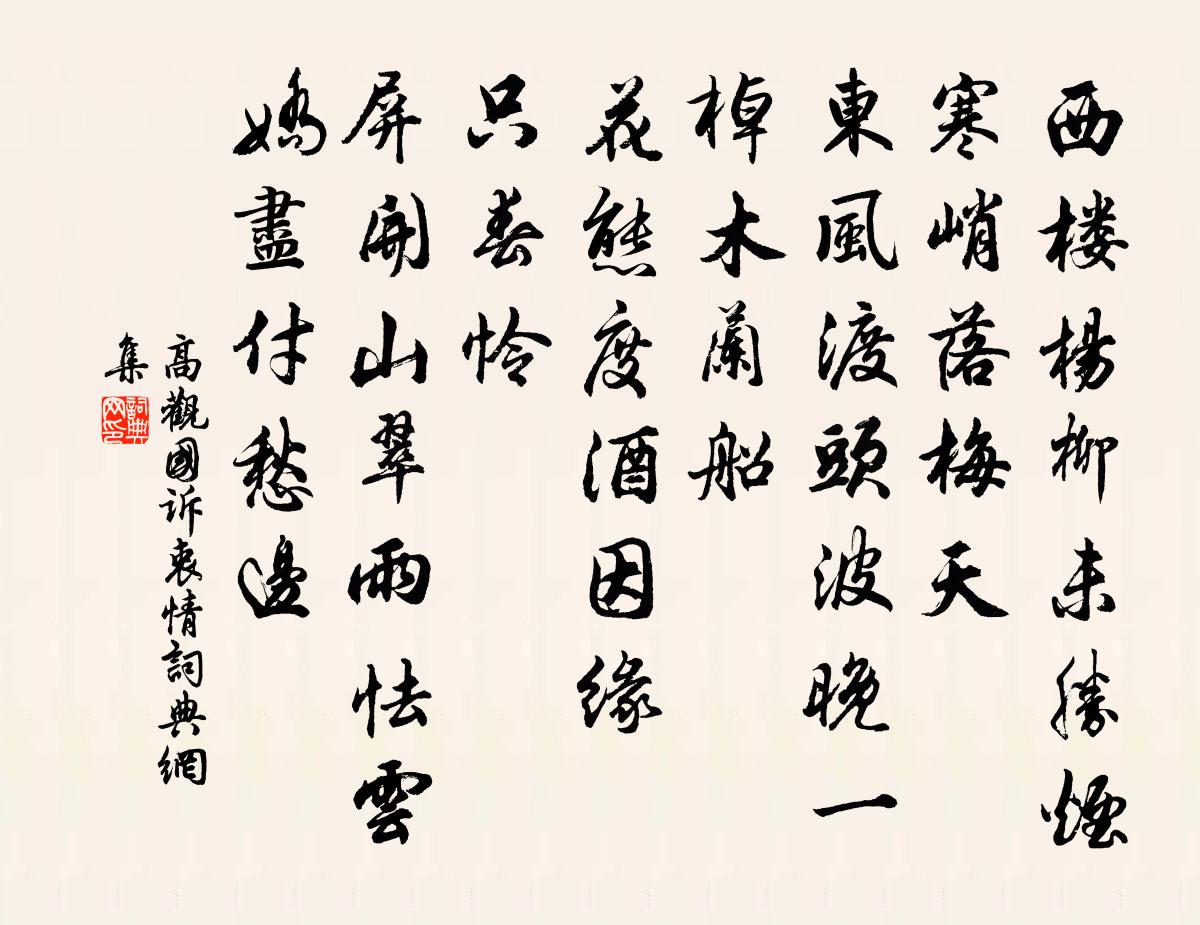 西楼楊柳未勝煙
寒峭落梅天
東風渡頭波晚一
棹木蘭船
花態度酒因緣
只春怜
屏開山翠雨怯雲
嬌盡付愁邊
高觀國诉衷情詞典網
集
詞典网印